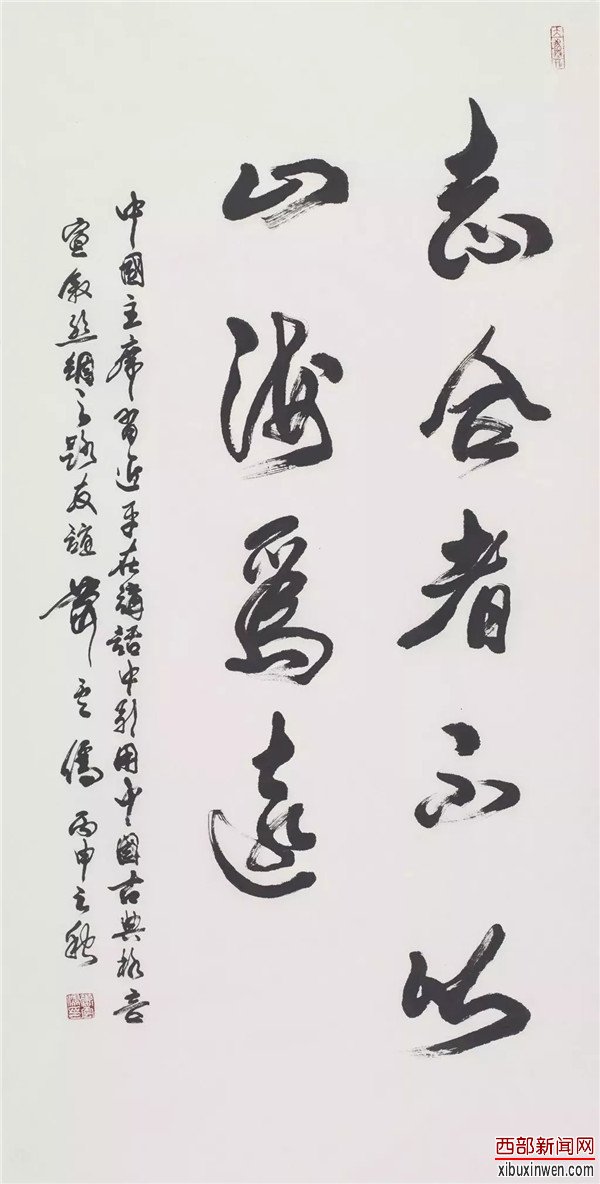 志合者不以
山海爲遠
中國主席習近平在講話中引用中國古典格言
宣敘絲綢之路友誼 薛雲儒 丙申之秋
西部新闻网
xibuxinwen.com